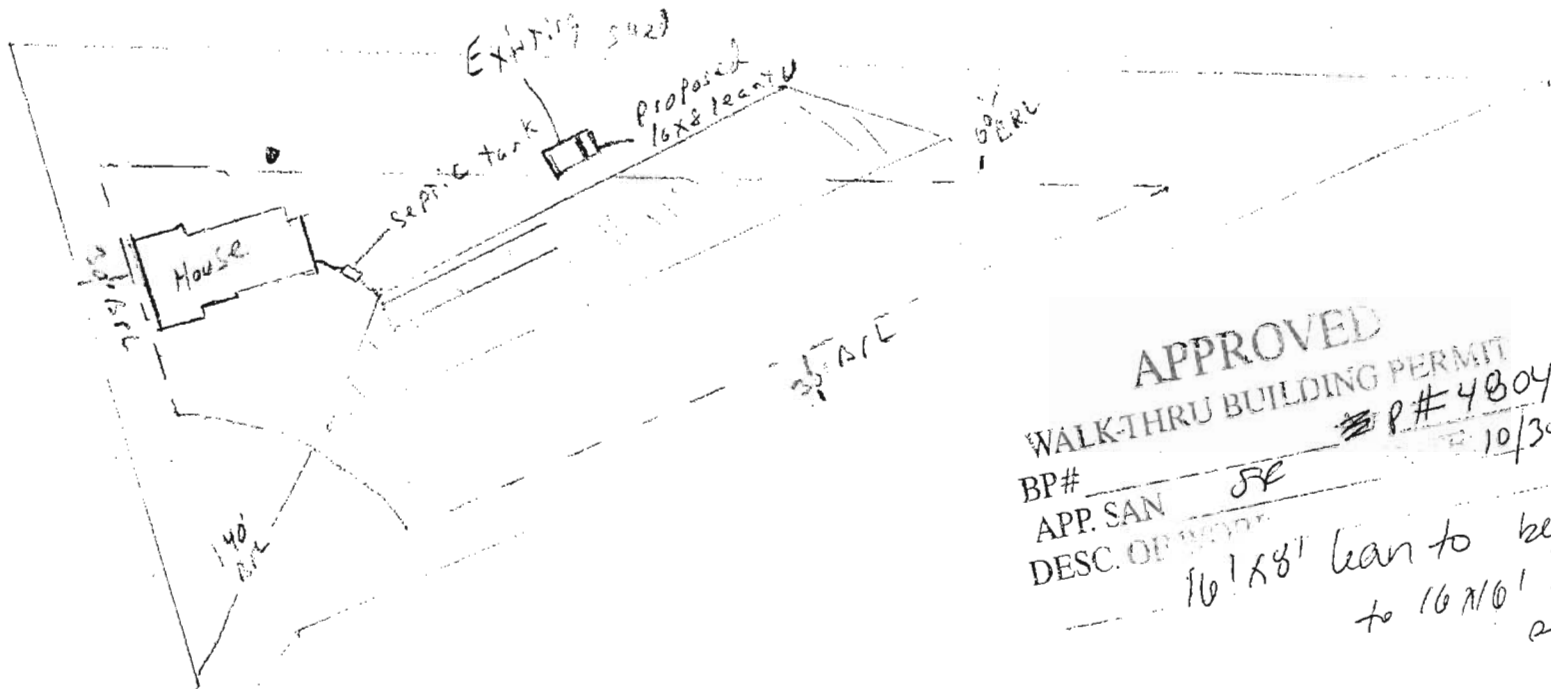 Existing shed
proposed
16x8 leanto
septic tank
House
60' BRL
35' BRL
140'
BRL
APPROVED
WALK-THRU BUILDING PERMIT
BP# P#4804
10/30
APP. SAN
DESC. OF WORK
16'x8' lean to be
to 16x16'